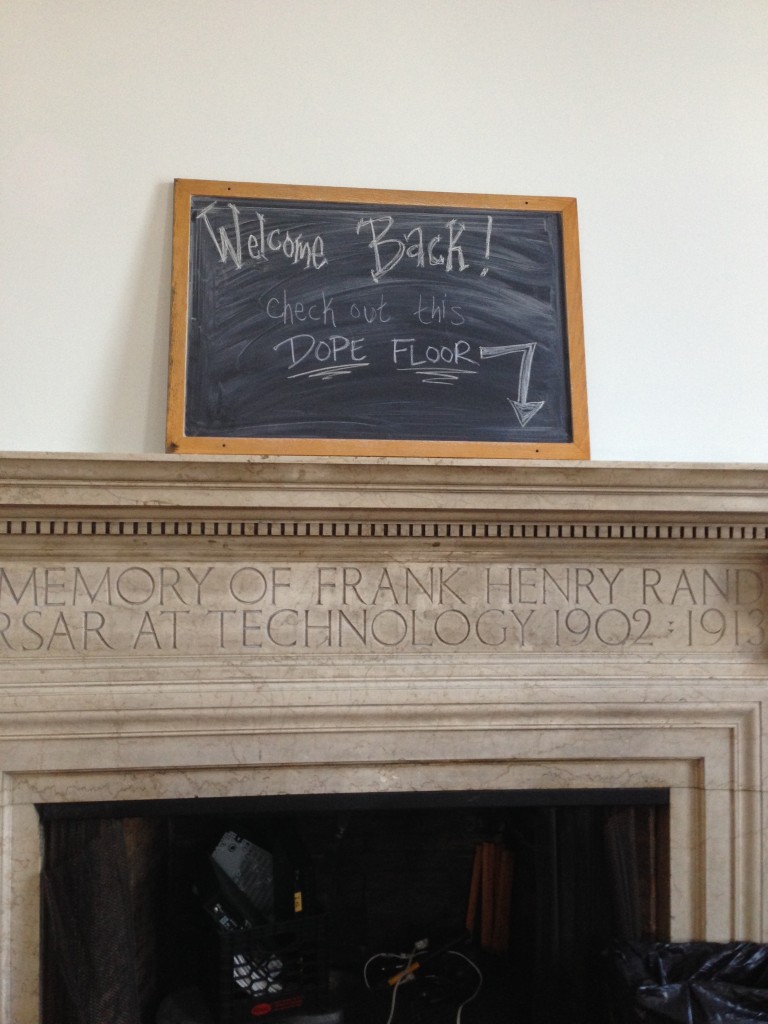 Welcome Back!
check out this
DOPE FLOOR
MEMORY OF FRANK HENRY RAND
RSAR AT TECHNOLOGY 1902 : 1913